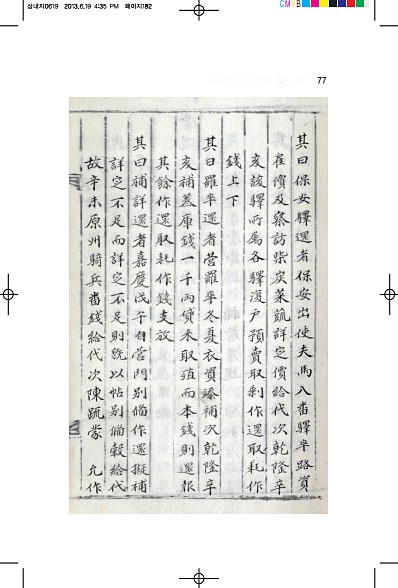 삼내지0619 2013.6.19 4:35 PM 페이지182
CMYB
77
其曰保安驛還者保安出使夫馬入番驛卒路資
雇價及察訪柴炭菜蔬詳定價給代次乾隆辛
亥該驛所屬各驛復戶預賣取剩作還取耗作
錢上下
其曰羅卒還者營羅卒冬夏衣資添補次乾隆辛
亥補蓋庫錢一千兩貸來取殖而本錢則還報
其餘作還取耗作錢支放
其曰補詳還者嘉慶戊午自營門別備作還擬補
詳定不足而詳定不足則旣以帖別備穀給代
故辛未原州騎兵番錢給代次陳䟽蒙 允作